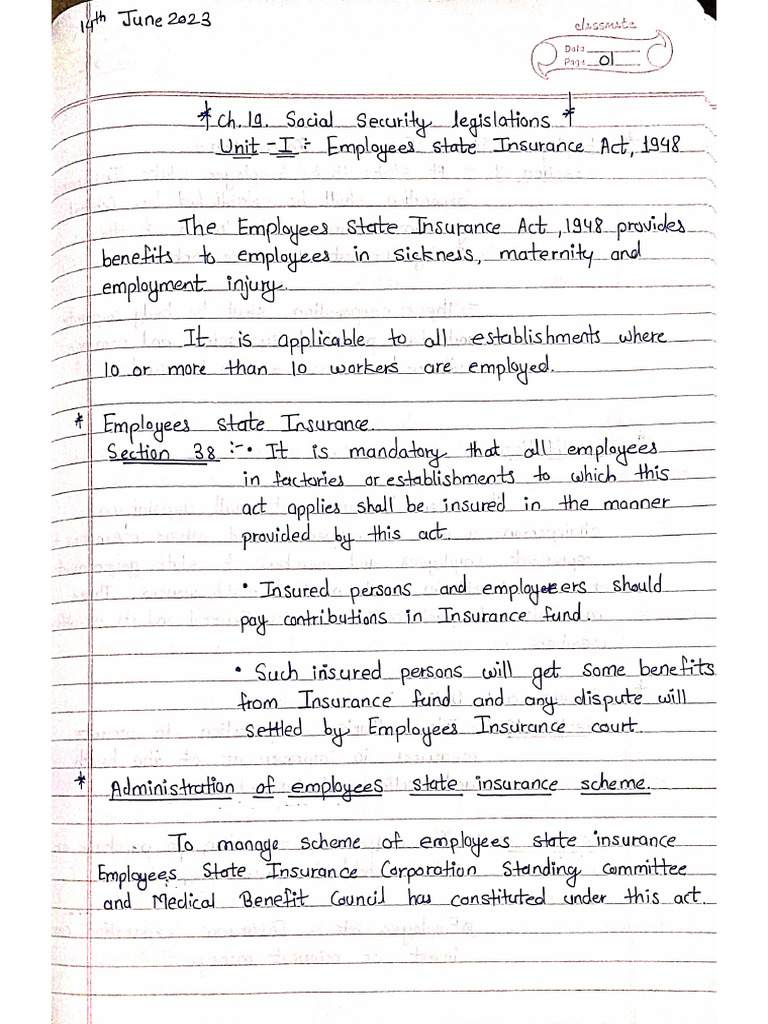 14th June 2023
classmate
Date
Page 01
* Ch. 19. Social Security legislations *
Unit - I :- Employees state Insurance Act, 1948
The Employees State Insurance Act, 1948 provides
benefits to employees in sickness, maternity and
employment injury.
It is applicable to all establishments where
10 or more than 10 workers are employed.
* Employees state Insurance.
Section 38 :- • It is mandatory that all employees
in factories or establishments to which this
act applies shall be insured in the manner
provided by this act.
• Insured persons and employeeers should
pay contributions in Insurance fund.
• Such insured persons will get some benefits
from Insurance fund and any dispute will
settled by Employees Insurance court.
* Administration of employees state insurance scheme.
To manage scheme of employees state insurance
Employees State Insurance Corporation Standing committee
and Medical Benefit Council has constituted under this act.